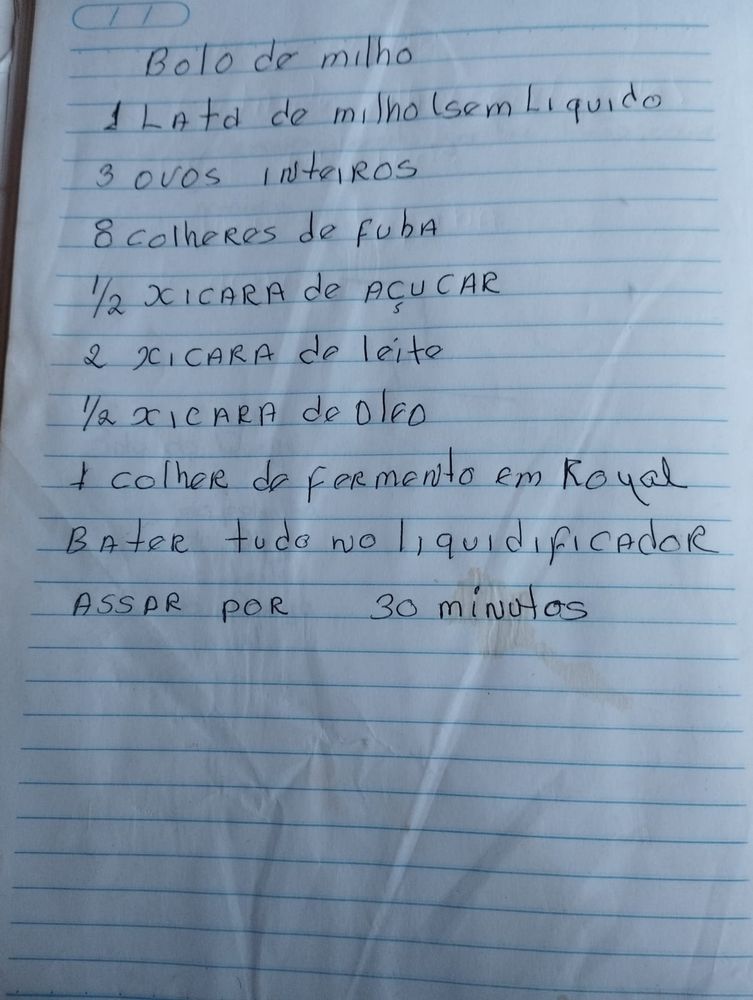 Bolo de milho
1 LAtA de milho (sem Liquido
3 ovos INteiROS
8 colheRes de FubA
1/2 XICARA de AÇUCAR
2 XICARA de leite
1/2 XICARA de OlEO
1 colheR de FeRmeNto em Royal
BAteR tudo no liquidiFICAdoR
ASSAR PoR 30 miNutos